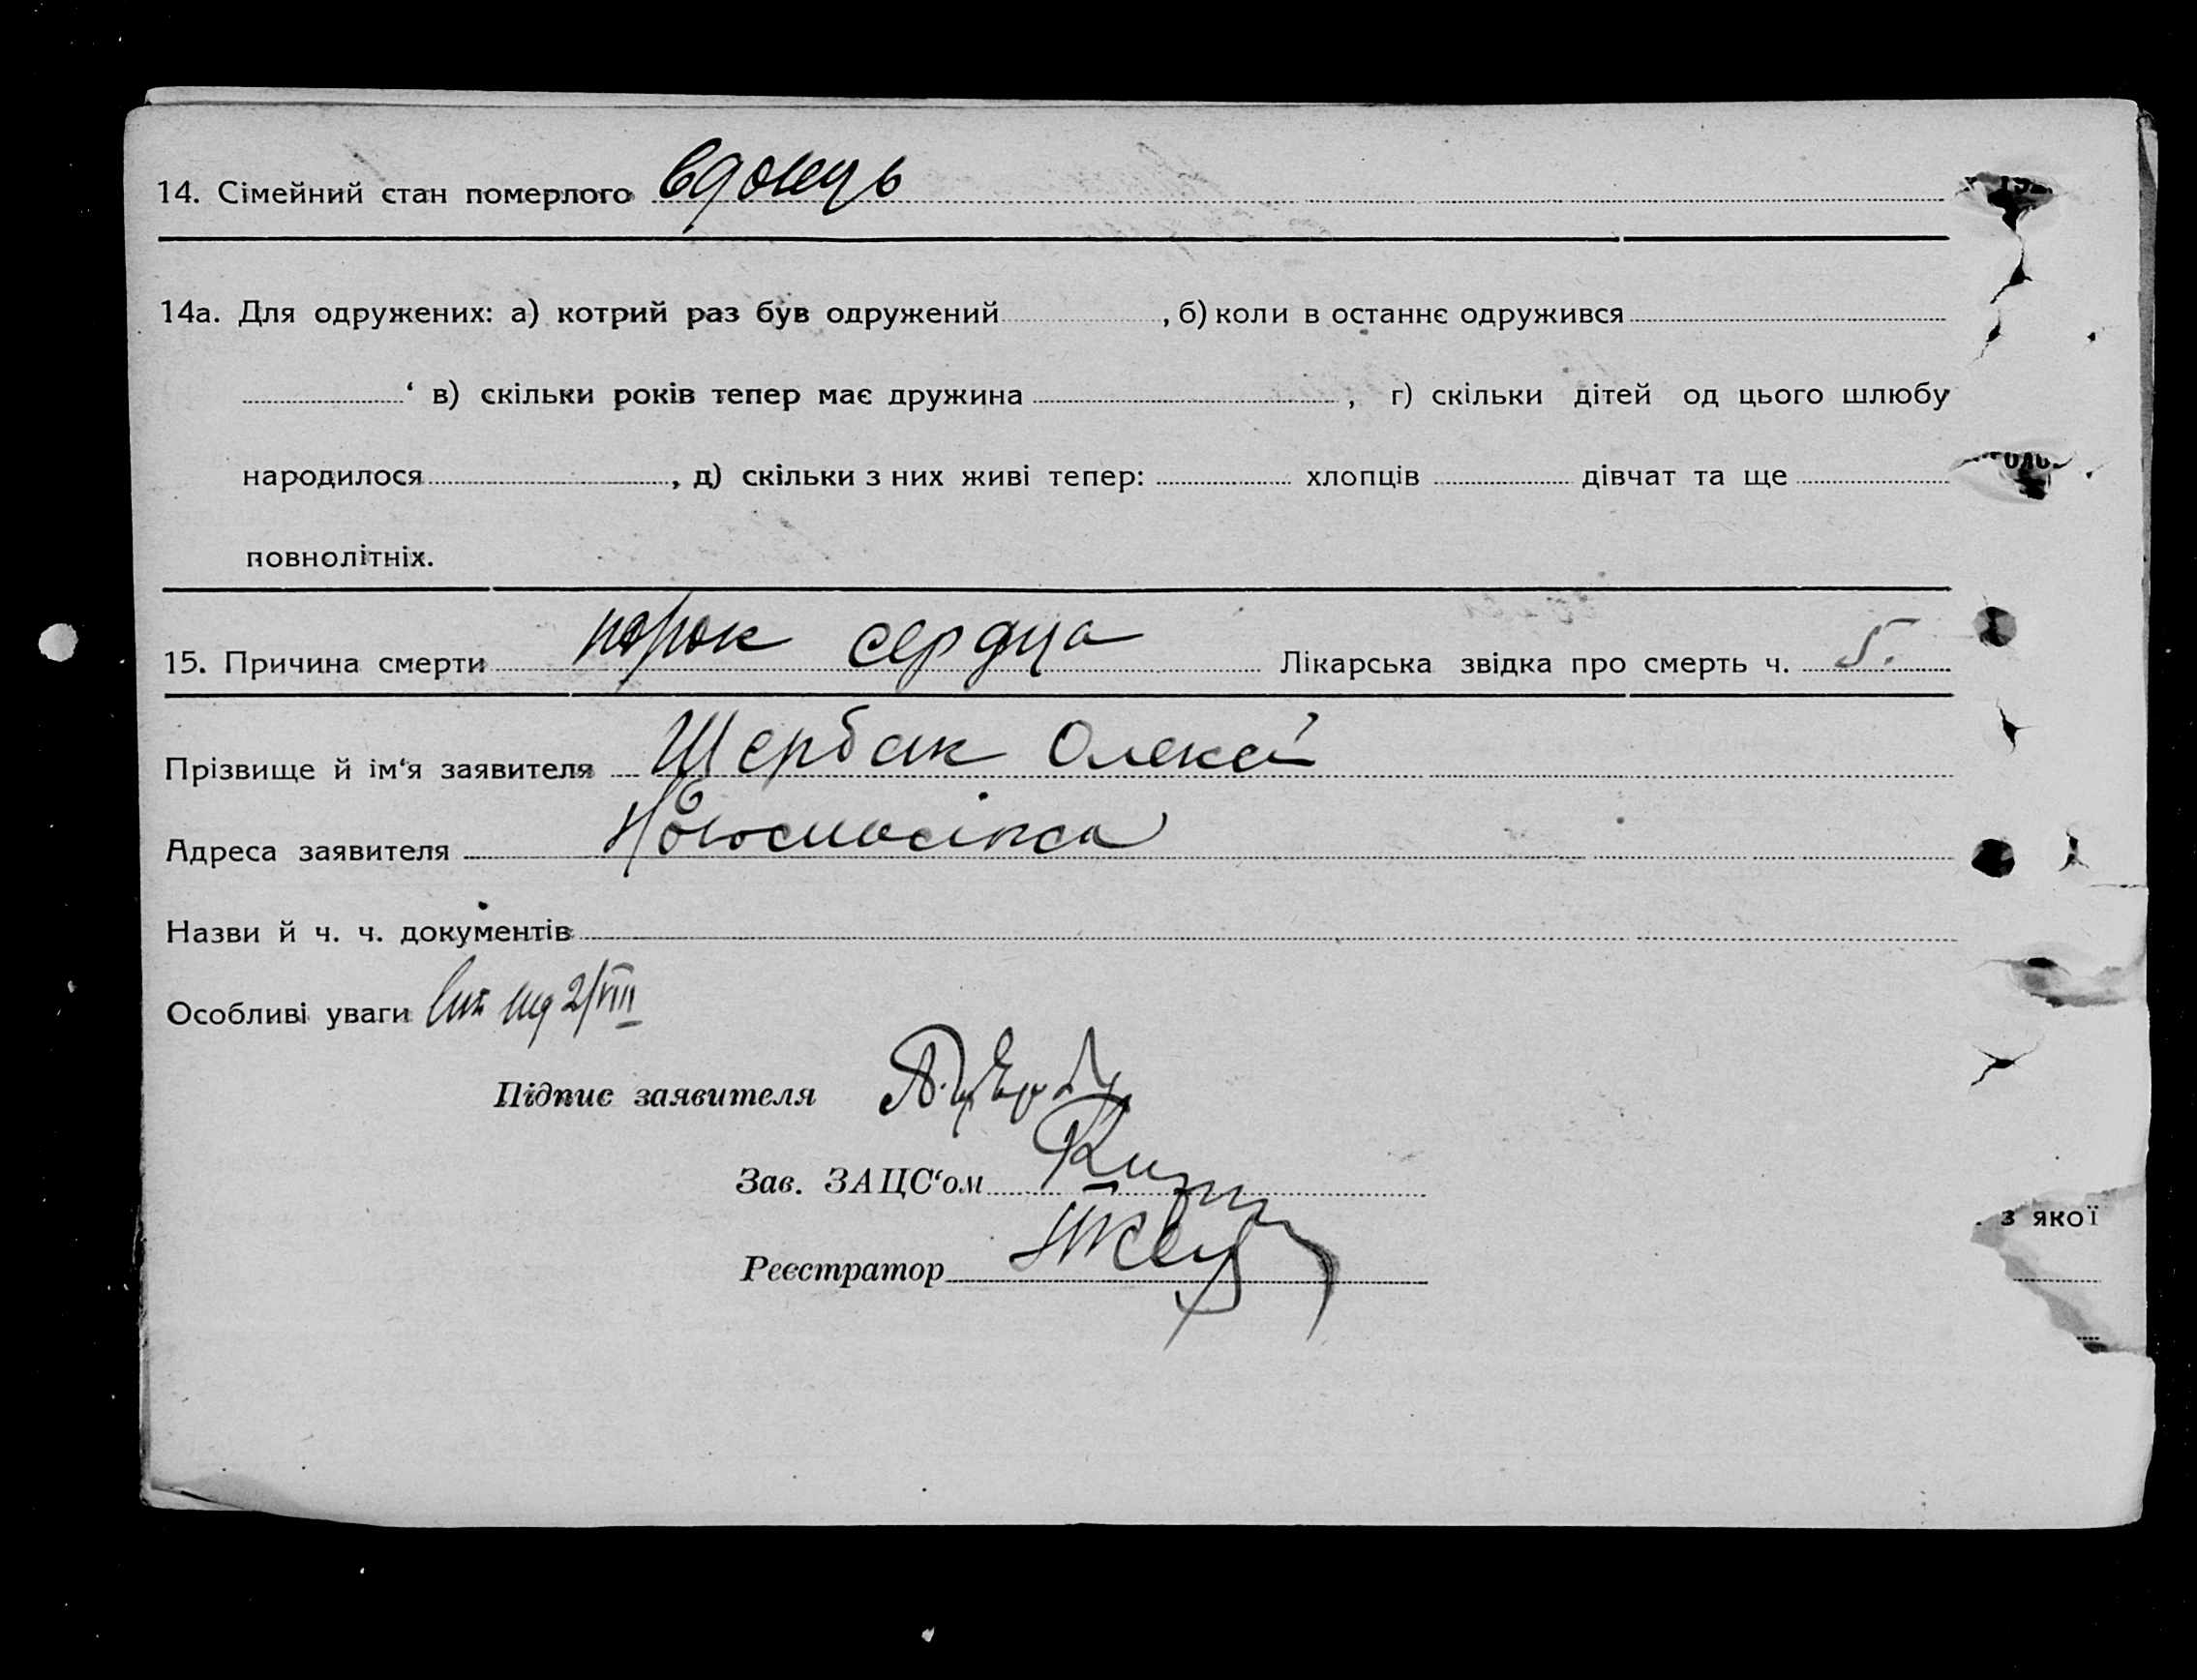 14. Сімейний стан померлого вдовець
14а. Для одружених: а) котрий раз був одружений , б) коли в останнє одружився
‘ в) скільки років тепер має дружина , г) скільки дітей од цього шлюбу
народилося , д) скільки з них живі тепер: хлопців дівчат та ще
повнолітніх.
15. Причина смерти порок сердца Лікарська звідка про смерть ч. 5.
Прізвище й ім‘я заявителя Щербак Олексій
Адреса заявителя
Назви й ч. ч. документів
Особливі уваги 2/VIII
Підпис заявителя
Зав. ЗАЦС‘ом
з якої
Реєстратор